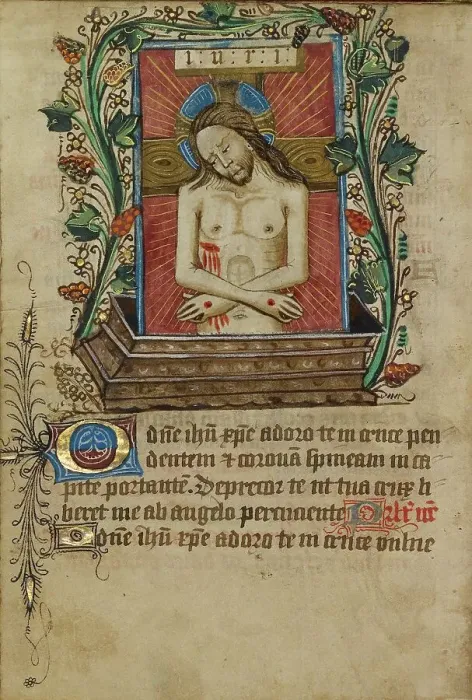 i·n·r·i·
O dñe ihũ xpe adoro te in cruce pen
dentem ⁊ coronã spineam in ca
pite portantẽ. Deprecor te ut tua crux li
beret me ab angelo percuciente
O dñe ihũ xpe adoro te in cruce vulne